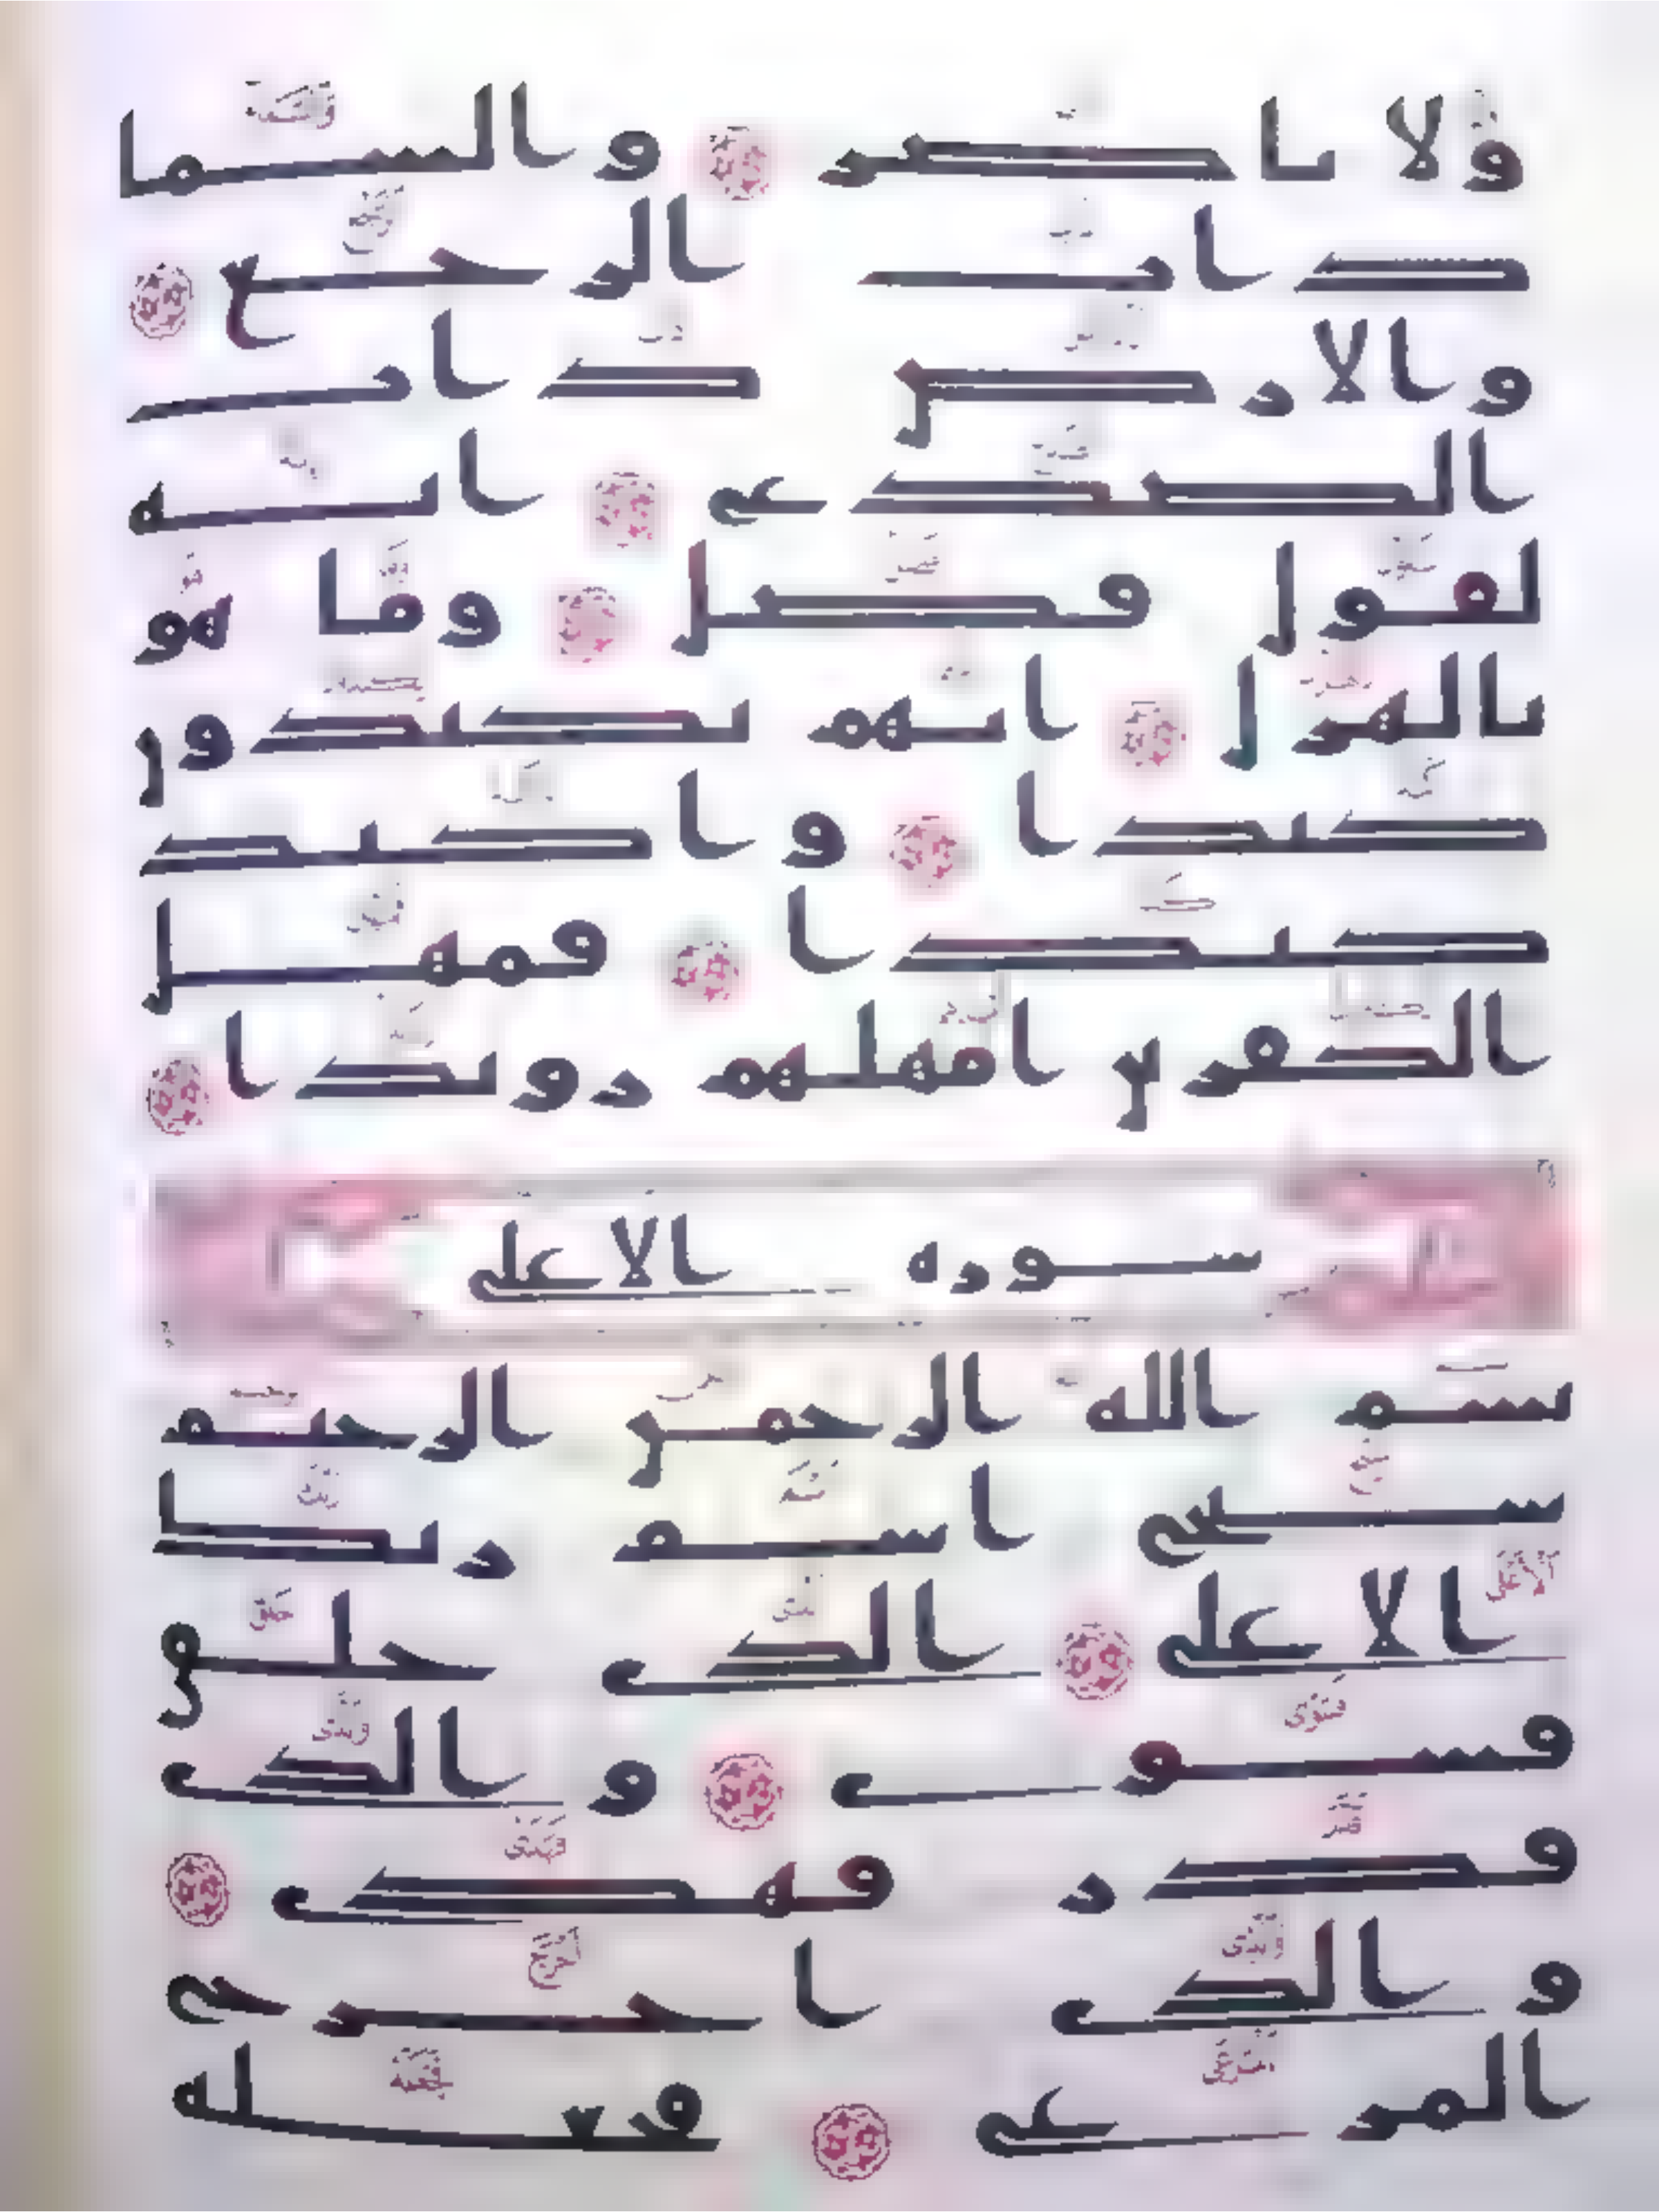 ولا ناصر والسما
ذات الرجع
والارض ذات
الصدع انه
لقول فصل وما هو
بالهزل انهم يكيدون
كيدا واكيد
كيدا فمهل
الكفرين امهلهم رويدا
سورة الاعلى
بسم الله الرحمن الرحيم
سبح اسم ربك
الاعلى الذي خلق
فسوى والذي
قدر فهدى
والذي اخرج
المرعى فجعله